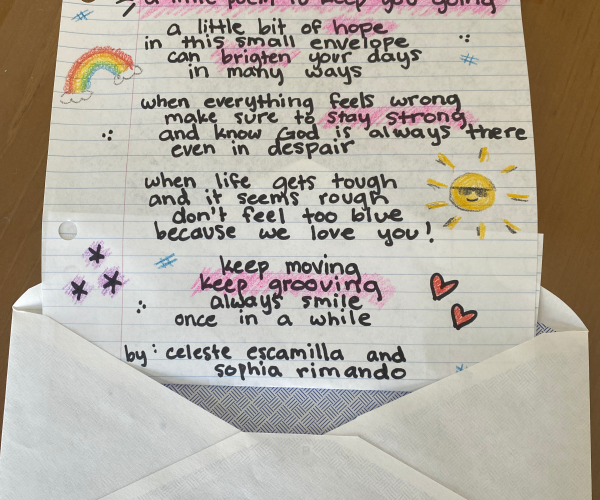 a little poem to keep you going
a little bit of hope
in this small envelope
can brigten your days
in many ways
when everything feels wrong
make sure to stay strong
and know God is always there
even in despair
when life gets tough
and it seems rough
don't feel too blue
because we love you!
keep moving
keep grooving
always smile
once in a while
by: celeste escamilla and
sophia rimando